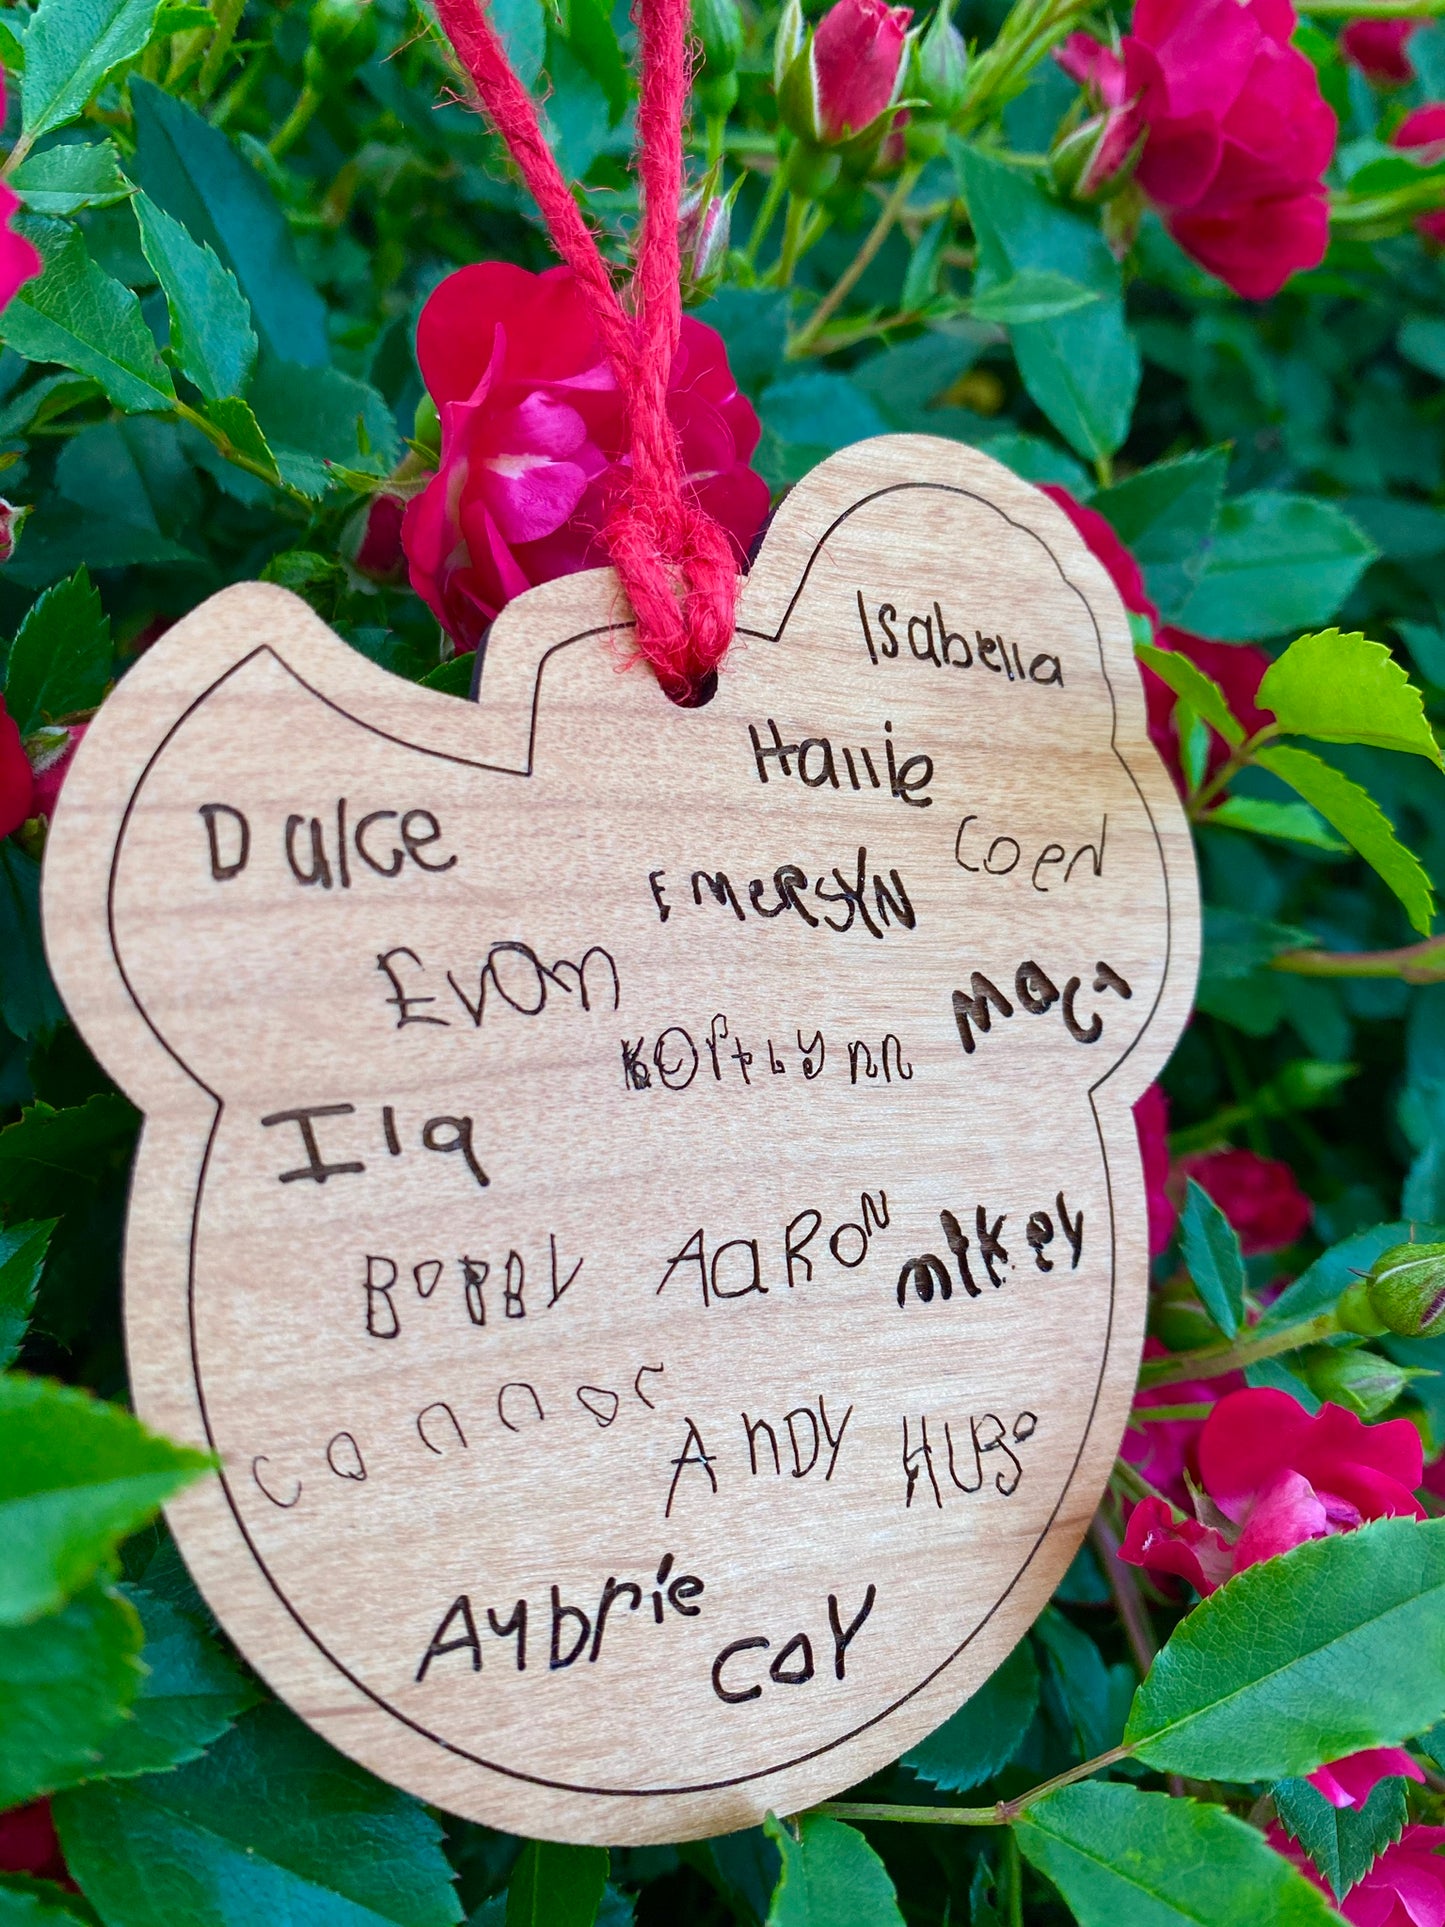 Isabella
Hallie
Dulce
Coen
EMERSYN
Evan
Macy
Kortlynn
Ila
BOBBY
AaRON
mikey
connor
ANDY
HUGO
Aubrie
COY